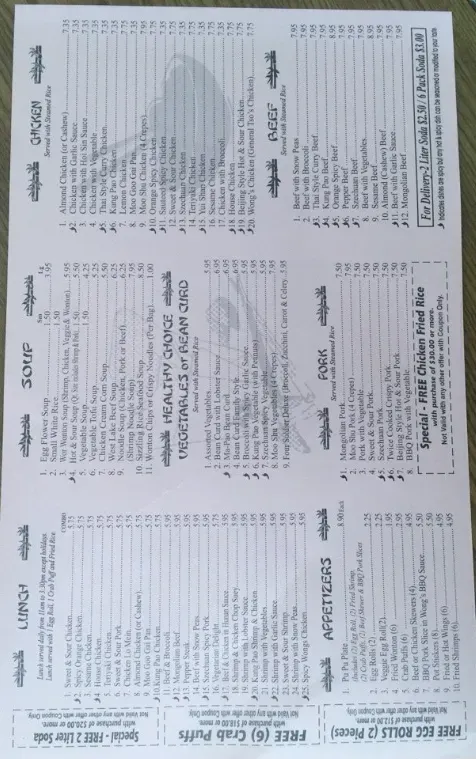 LUNCH
Lunch served daily from 11am to 3:30pm except holidays
Lunch served with 1 Egg Roll, 1 Crab Puff and Fried Rice.
COMBO
1. Sweet & Sour Chicken 5.75
2. Spicy Orange Chicken 5.75
3. Sesame Chicken 5.75
4. Hunan Chicken 5.75
5. Teriyaki Chicken 5.75
6. Sweet & Sour Pork 5.75
7. Chicken Lo Mein 5.75
8. Almond Chicken (or Cashew) 5.75
9. Moo Goo Gai Pan 5.75
10. Kung Pao Chicken 5.75
11. Hunan Beef 5.95
12. Mongolian Beef 5.95
13. Pepper Steak 5.95
14. Chicken w. Snow Peas 5.95
15. Szechuan Spicy Pork 5.95
16. Vegetarian Delight
18. Shrimp & Chicken Chop Suey 5.95
19. Shrimp with Lobster Sauce 5.95
20. Kung Pao Shrimp & Chicken 5.95
21. Shrimp with Vegetables 5.95
22. Shrimp with Garlic Sauce 5.95
23. Sweet & Sour Shrimp 5.95
24. Shrimp with Snow Peas 5.95
25. Spicy Wings Chicken 5.95
APPETIZERS
1. Pu Pu Plate 8.90 Each
(2) Egg Roll, (2) Fried Shrimp,
(2) Crab Puffs, (2) Beef Skewer & BBQ Pork Slices
2. Egg Rolls (2) 2.25
3. Veggie Egg Roll(2) 2.25
4. Fried Wonton (6) 1.95
5. Crab Puffs (6) 2.95
6. Beef or Chicken Skewers (4) 4.95
7. BBQ Pork Slice in Wong's BBQ Sauce 5.50
8. Pot Stickers (8) 5.50
9. Fried or Hot Wings (6) 4.95
10. Fried Shrimps (6) 4.95
Special - FREE 2 Liter Soda
with purchase of $26.00 or more.
Not Valid with any other offer with Coupon Only
FREE (6) Crab Puffs
with purchase of $18.00 or more
Not Valid with any other offer with Coupon Only
FREE EGG ROLLS (2 Pieces)
with purchase of $12.50 or more
Not Valid with any other offer with Coupon Only
SOUP
Sm Lg
1. Egg Flower Soup 1.50 3.95
2. Small White Rice 1.50
3. Wor Wonton Soup (Shrimp, Chicken, Veggie & Wonton) 5.95
4. Hot & Sour Soup 1.50 5.50
5. Vegetable Soup 1.50 4.25
6. Vegetable Tofu Soup 5.25
7. Chicken Cream Corn Soup 5.50
8. West Lake Beef Soup 6.25
9. Noodle Soup (Chicken, Pork or Beef) 6.25
(Shrimp Noodle Soup) 7.95
10. Sizzling Rice Seafood Soup 8.50
11. Wonton Chips or Crispy Noodles (Per Bag) 1.00
HEALTHY CHOICE
VEGETABLES or BEAN CURD
Served with Steamed Rice
1. Assorted Vegetables 5.95
2. Bean Curd with Lobster Sauce 6.95
3. Ma-Pao Bean Curd 5.95
4. Bean Curd Family Style 6.95
5. Broccoli with Spicy Garlic Sauce 5.95
6. Kung Pao Vegetable (with Peanuts) 5.95
7. Szechuan Vegetables 5.95
8. Moo Shu Vegetables (4 Crepes) 7.95
9. Four Soldier Deluxe (Broccoli, Zucchini, Carrot & Celery) 5.95
PORK
Served with Steamed Rice
1. Mongolian Pork 7.50
2. Moo Shu Pork (4 Crepes) 7.95
3. Pork with Vegetable 7.50
4. Sweet & Sour Pork 7.50
5. Szechuan Pork 7.50
6. Twice Cooked Crispy Pork 7.50
7. Beijing Style Hot & Sour Pork 7.50
8. BBQ Pork with Vegetable 7.50
Special - FREE Chicken Fried Rice
with purchase of $30.00 or more.
Not Valid with any other offer with Coupon Only.
CHICKEN
Served with Steamed Rice
1. Almond Chicken (or Cashew) 7.35
2. Chicken with Garlic Sauce 7.35
3. Chicken with Hoi Sin Sauce 7.35
4. Chicken with Vegetable 7.35
5. Thai Style Curry Chicken 7.35
6. Kung Pao Chicken 7.35
7. Lemon Chicken 7.75
8. Moo Goo Gai Pan 7.35
9. Moo Shu Chicken (4 Crepes) 7.95
10. Orange Spicy Chicken 7.75
11. Sauteed Spicy Chicken 7.35
12. Sweet & Sour Chicken 7.35
13. Szechuan Chicken 7.35
14. Teriyaki Chicken 7.35
15. Yui Shao Chicken 7.35
16. Sesame Chicken 7.75
17. Chicken with Broccoli 7.35
18. House Chicken 7.75
19. Beijing Style Hot & Sour Chicken 7.75
20. Wong's Chicken (General Tso's Chicken) 7.75
BEEF
Served with Steamed Rice
1. Beef with Snow Peas 7.95
2. Beef with Broccoli 7.95
3. Thai Style Curry Beef 7.95
4. Kung Pao Beef 7.95
5. Orange Spicy Beef 8.95
6. Pepper Beef 7.95
7. Szechuan Beef 7.95
8. Beef with Vegetables 7.95
9. Sesame Beef 8.95
10. Almond (Cashew) Beef 7.95
11. Beef with Garlic Sauce 7.95
12. Mongolian Beef 7.95
For Delivery-2 Liter Soda $2.50 / 6 Pack Soda $3.00
Indicates dishes are spicy but any hot & spicy dish can be seasoned or modified to your taste